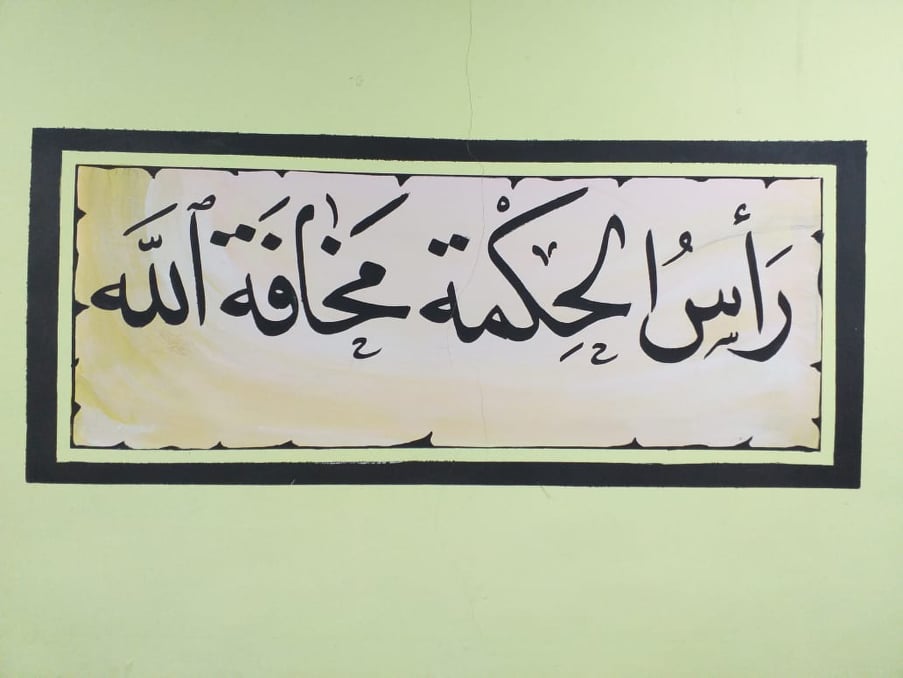 رَأْسُ الحِكْمَة مَخَافَة اللَّه